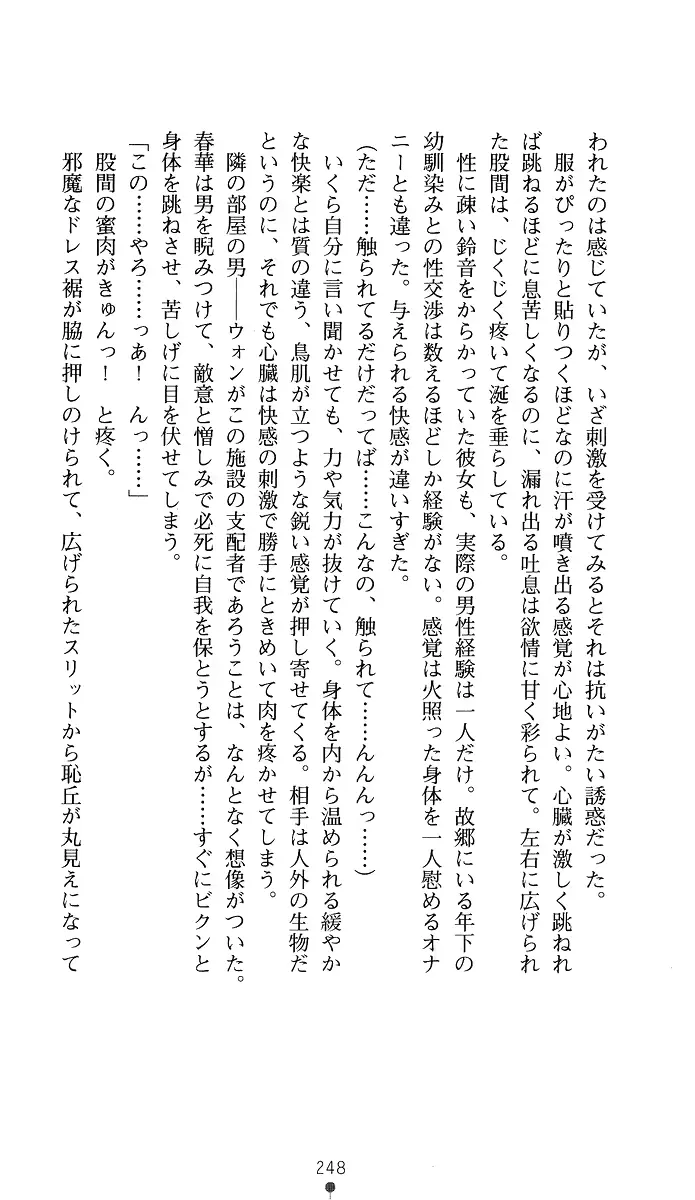 われたのは感じていたが、いざ刺激を受けてみるとそれは抗いがたい誘惑だった。
服がぴったりと貼りつくほどなのに汗が噴き出る感覚が心地よい。心臓が激しく跳ねれ
ば跳ねるほどに息苦しくなるのに、漏れ出る吐息は欲情に甘く彩られて。左右に広げられ
た股間は、じくじく疼いて涎を垂らしている。
性に疎い鈴音をからかっていた彼女も、実際の男性経験は一人だけ。故郷にいる年下の
幼馴染みとの性交渉は数えるほどしか経験がない。感覚は火照った身体を一人慰めるオナ
ニーとも違った。与えられる快感が違いすぎた。
(ただ……触られてるだけだってば……こんなの、触られて……んんんっ……)
いくら自分に言い聞かせても、力や気力が抜けていく。身体を内から温められる緩やか
な快楽とは質の違う、鳥肌が立つような鋭い感覚が押し寄せてくる。相手は人外の生物だ
というのに、それでも心臓は快感の刺激で勝手にときめいて肉を疼かせてしまう。
隣の部屋の男――ウォンがこの施設の支配者であろうことは、なんとなく想像がついた。
春華は男を睨みつけて、敵意と憎しみで必死に自我を保とうとするが……すぐにビクンと
身体を跳ねさせ、苦しげに目を伏せてしまう。
「この……やろ……っあ！　んっ……」
股間の蜜肉がきゅんっ！　と疼く。
邪魔なドレス裾が脇に押しのけられて、広げられたスリットから恥丘が丸見えになって
248